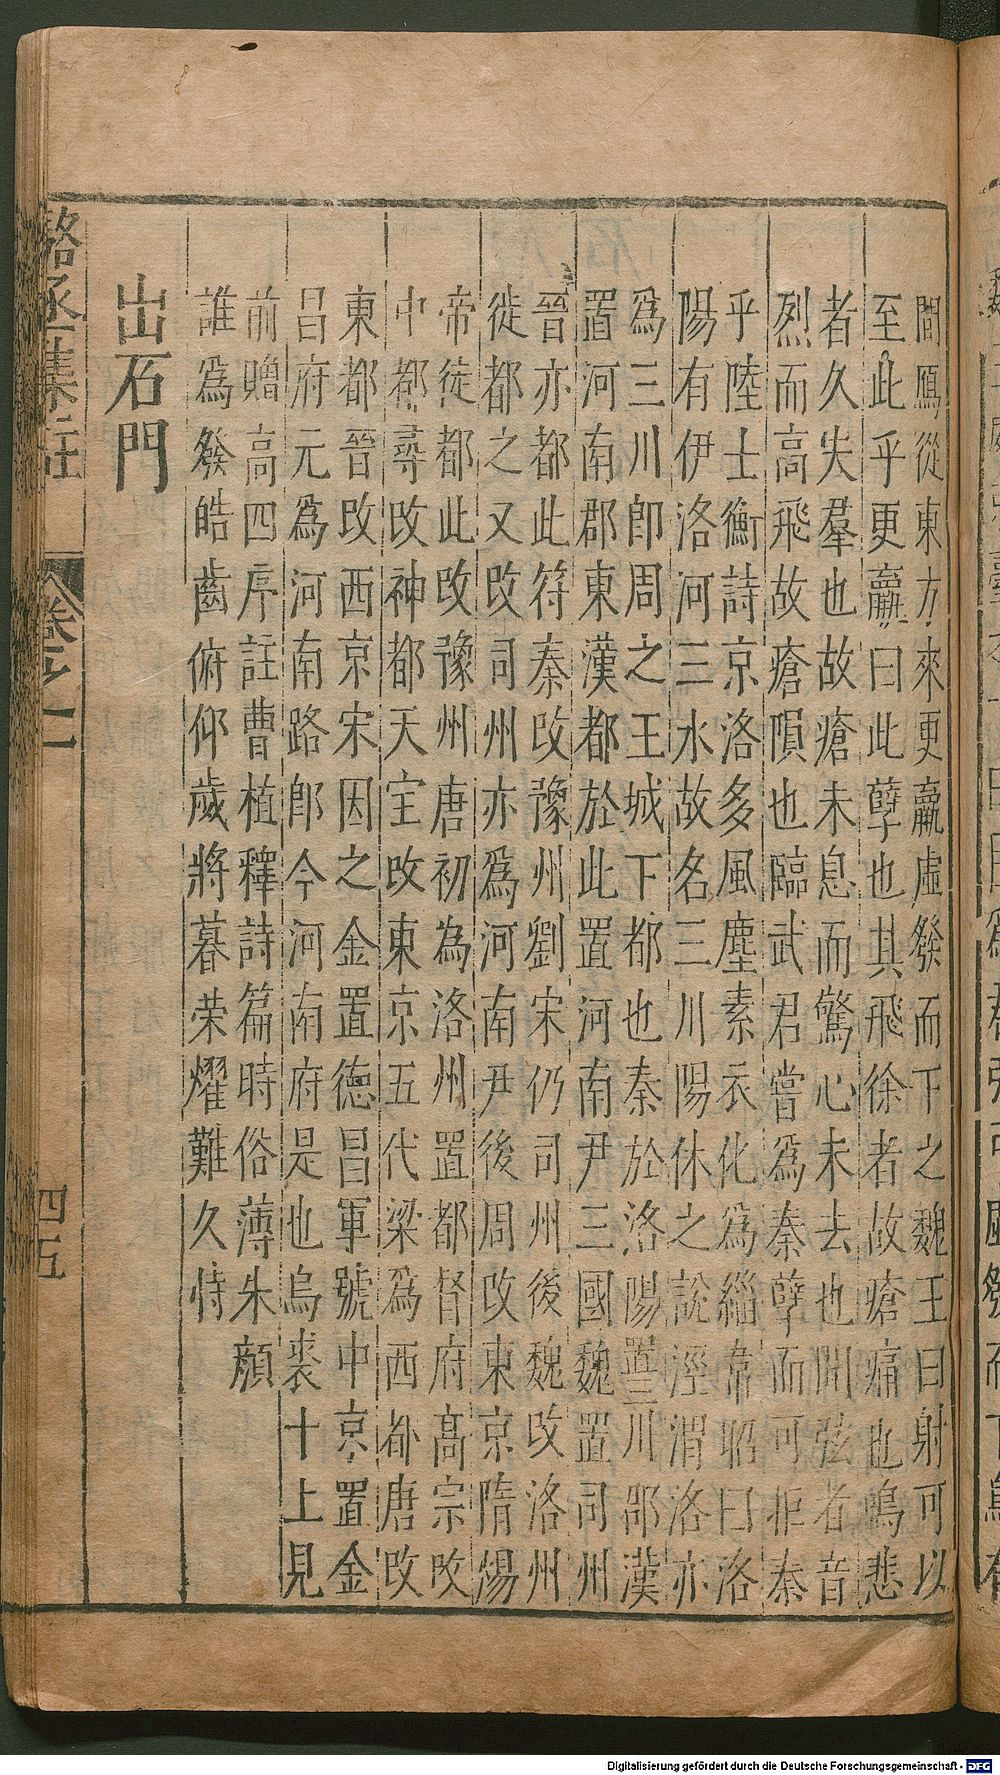 間鴈從東方來更羸虛發而下之魏王曰射可以
至此乎更羸曰此孽也其飛徐者故瘡痛也鳴悲
者久失羣也故瘡未息而驚心未去也聞弦者音
烈而高飛故瘡隕也臨武君嘗爲秦孽而可拒秦
乎陸士衡詩京洛多風塵素衣化爲緇韋昭曰洛
陽有伊洛河三水故名三川陽休之說涇渭洛亦
爲三川卽周之王城下都也秦於洛陽置三川郡漢
置河南郡東漢都於此置河南尹三國魏置司州
晉亦都此符秦改豫州劉宋仍司州後魏改洛州
徙都之又改司州亦爲河南尹後周改東京隋煬
帝徙都此改豫州唐初為洛州置都督府高宗改
中都尋改神都天宝改東京五代梁爲西都唐改
東都晉改西京宋因之金置德昌軍號中京置金
昌府元爲河南路卽今河南府是也烏裘十上見
前贈高四序註曹植釋詩篇時俗薄朱顏
誰爲發皓齒俯仰歲將暮荣耀難久恃
出石門
駱丞集註 卷之二 四五
Digitalisierung gefördert durch die Deutsche Forschungsgemeinschaft - DFG